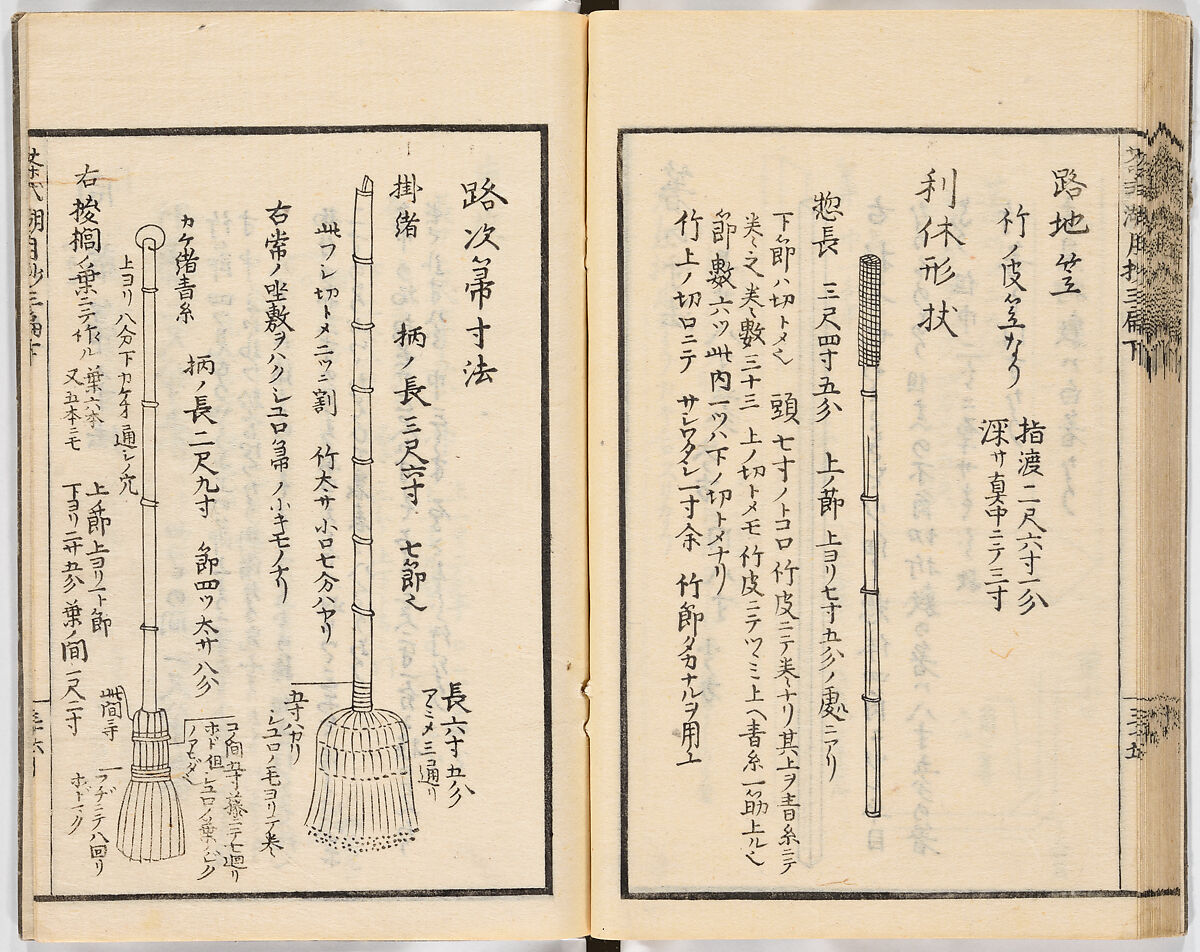 路地笠
竹ノ皮笠なり
指渡二尺六寸一分
深サ真中ニテ三寸
利休形杖
惣長 三尺四寸五分 上ノ節 上ヨリ七寸五分ノ処ニアリ
下節ハ切トメ也 頭七寸ノトコロ竹皮ニテ巻ナリ其上ヲ青糸ニテ
巻之巻数三十三 上ノ切トメモ竹皮ニテツヽミ上ヘ青糸一筋上ル也
節数六ツ此内一ツハ下ノ切トメナリ
竹上ノ切口ニテ サシワタシ一寸余 竹節タカナルヲ用上
三十五
路次箒寸法
掛緒 柄ノ長三尺六寸 七節也
長六寸五分
アミメ三通リ
此フシ切トメ二ツニ割 竹太サ小口七分ハカリ
五寸ハカリ
シユロノ毛ヨリテ巻
右常ノ坐敷ヲハクシユロ箒ノ小キモノナリ
柄ノ長二尺九寸 節四ツ太サ八分
コノ間五寸藤ニテ七廻リ
ホド但シユロノ葉ノシク
カケ緒青糸
上ヨリ八分下カケ緒通シノ穴
此間三寸
右棕櫚ノ葉ニテ作ル葉六本
又五本ニモ
上節上ヨリ一ト節
下ヨリ二寸五分葉ノ間一尺二寸
フヂニテ八回リ
ホドマク